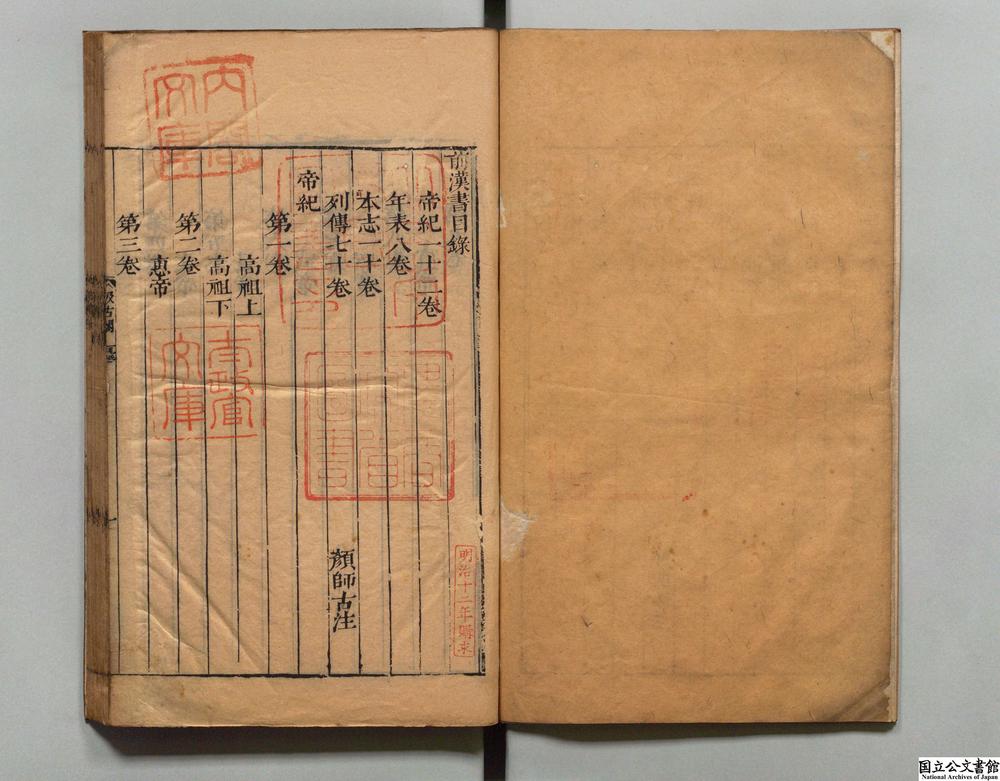 前漢書目錄
帝紀一十二卷
年表八卷
本志一十卷
列傳七十卷
顏師古注
帝紀
第一卷
高祖上
高祖下
第二卷
惠帝
第三卷
汲古閣
內閣文庫
太政官文庫
明治十二年購求
国立公文書館
National Archives of Japan